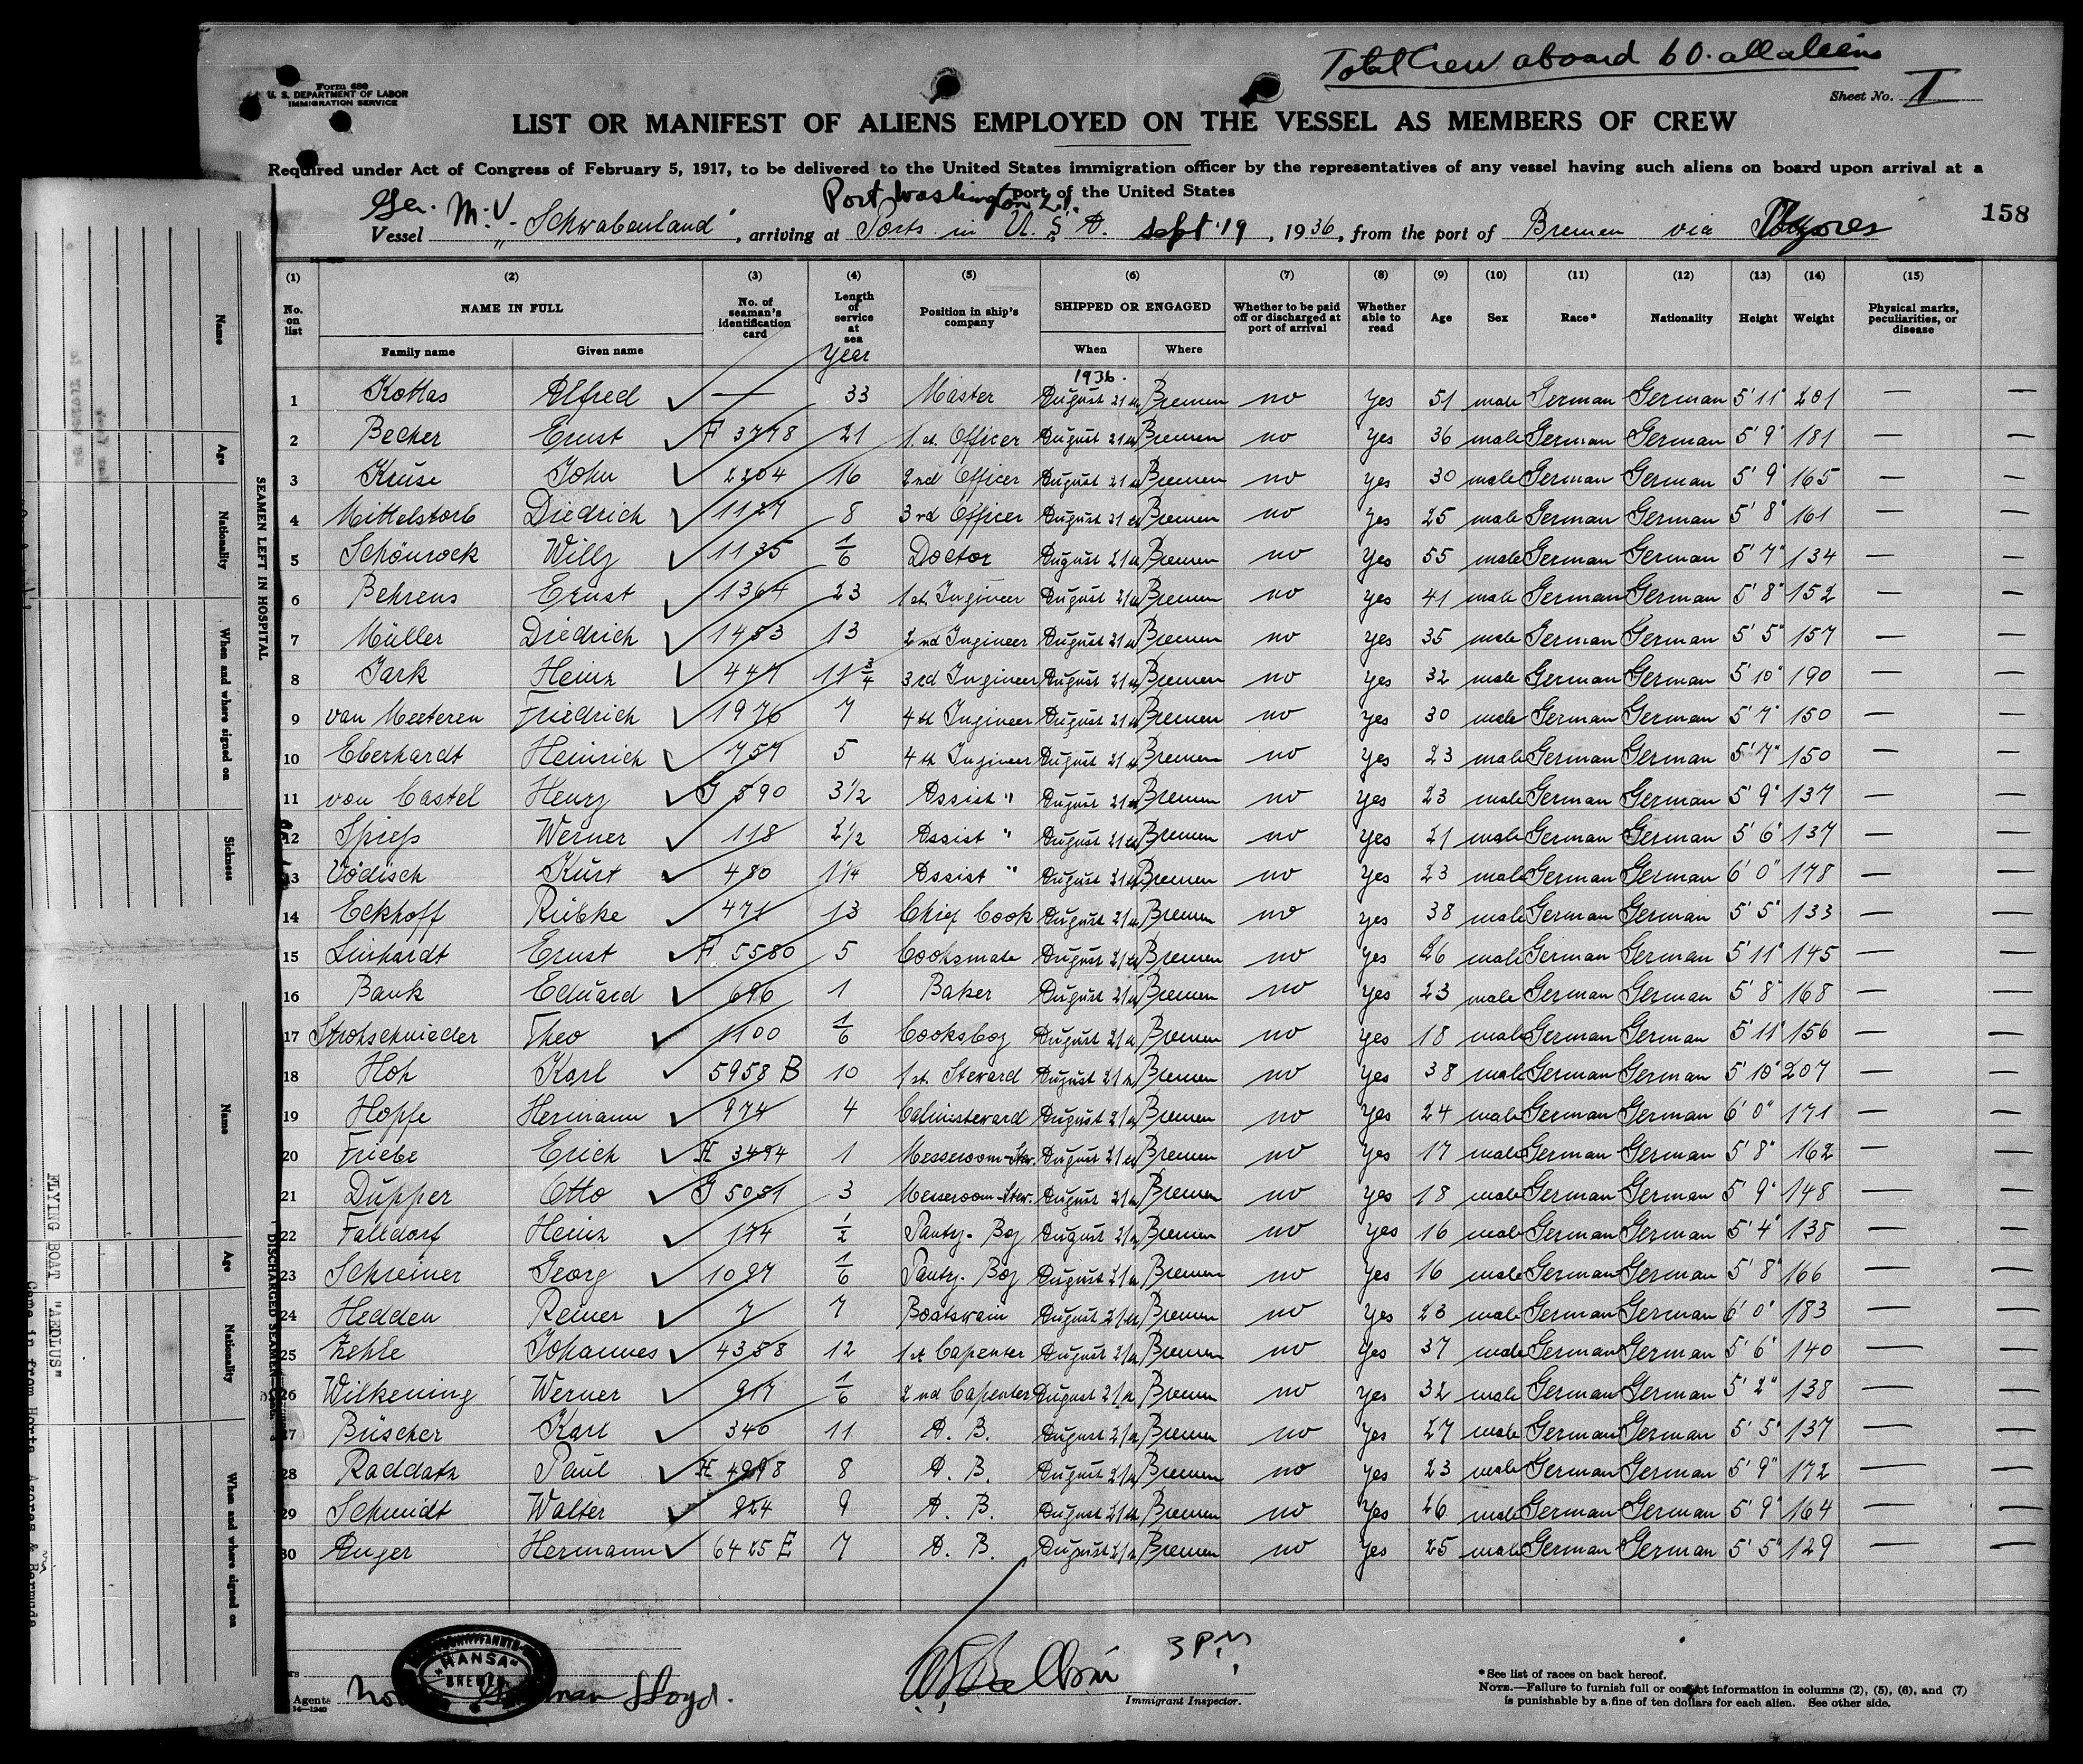 Total Crew aboard 60. all aliens
Form 680
U. S. DEPARTMENT OF LABOR
IMMIGRATION SERVICE
Sheet No. I
LIST OR MANIFEST OF ALIENS EMPLOYED ON THE VESSEL AS MEMBERS OF CREW
Required under Act of Congress of February 5, 1917, to be delivered to the United States immigration officer by the representatives of any vessel having such aliens on board upon arrival at a
port of the United States
Port Washington L.I.
158
Ger. M.V. Vessel „Schwabenland", arriving at Ports in U. S. A. Sept 19, 1936, from the port of Bremen via Azores
(1) (2) (3) (4) (5) (6) (7) (8) (9) (10) (11) (12) (13) (14) (15)
No. on list NAME IN FULL No. of seaman's identification card Length of service at sea Position in ship's company SHIPPED OR ENGAGED Whether to be paid off or discharged at port of arrival Whether able to read Age Sex Race* Nationality Height Weight Physical marks, peculiarities, or disease
Family name Given name year When Where
1936.
1 Kottas Alfred ✓ — 33 Master August 21th Bremen no yes 51 male German German 5' 11" 201 — —
2 Becker Ernst ✓ F 3778 21 1.st. Officer August 21th Bremen no yes 36 male German German 5' 9" 181 — —
3 Kruse John ✓ 2204 16 2nd Officer August 21th Bremen no yes 30 male German German 5' 9" 165 — —
4 Mittelstorb Diedrich ✓ 1127 8 3rd Officer August 21th Bremen no yes 25 male German German 5' 8" 161 — —
5 Schönrock Willy ✓ 1135 1/6 Doctor August 21th Bremen no yes 55 male German German 5' 7" 134 — —
6 Behrens Ernst ✓ 1364 23 1st. Ingineer August 21th Bremen no yes 41 male German German 5' 8" 152 — —
7 Müller Diedrich ✓ 1483 13 2nd Ingineer August 21th Bremen no yes 35 male German German 5' 5" 157 — —
8 Jark Heinz ✓ 447 11 3/4 3rd Ingineer August 21th Bremen no yes 32 male German German 5' 10" 190 — —
9 van Meeteren Friedrich ✓ 1976 7 4th Ingineer August 21th Bremen no yes 30 male German German 5' 7" 150 — —
10 Eberhardt Heinrich ✓ 757 5 4th Ingineer August 21th Bremen no yes 23 male German German 5' 7" 150 — —
11 von Castel Henry ✓ G 590 3 1/2 Assist " August 21th Bremen no yes 23 male German German 5' 9" 137 — —
12 Spieß Werner ✓ 118 2 1/2 Assist " August 21th Bremen no yes 21 male German German 5' 6" 137 — —
13 Vödisch Kurt ✓ 480 1 1/4 Assist " August 21th Bremen no yes 23 male German German 6' 0" 178 — —
14 Eckhoff Rübke ✓ 471 13 Chief Cook August 21th Bremen no yes 38 male German German 5' 5" 133 — —
15 Linhardt Ernst ✓ F 5580 5 Cooksmate August 21th Bremen no yes 26 male German German 5' 11" 145 — —
16 Bank Eduard ✓ 696 1 Baker August 21th Bremen no yes 23 male German German 5' 8" 168 — —
17 Strohschnieder Theo ✓ 1100 1/6 Cooksboy August 21th Bremen no yes 18 male German German 5' 11" 156 — —
18 Hoh Karl ✓ 5958 B 10 1st. Steward August 21th Bremen no yes 38 male German German 5' 10" 207 — —
19 Hopfe Hermann ✓ 974 4 Cabinsteward August 21th Bremen no yes 24 male German German 6' 0" 171 — —
20 Friebe Erich ✓ H 3494 1 Messeroom-Stew. August 21th Bremen no yes 17 male German German 5' 8" 162 — —
21 Düpper Otto ✓ G 5051 3 Messeroom-Stew. August 21th Bremen no yes 18 male German German 5' 9" 148 — —
22 Falldorf Heinz ✓ 174 1/2 Pantry-Boy August 21th Bremen no yes 16 male German German 5' 4" 138 — —
23 Schreiner Georg ✓ 1097 1/6 Pantry-Boy August 21th Bremen no yes 16 male German German 5' 8" 166 — —
24 Hedden Reiner ✓ 7 7 Boatswain August 21th Bremen no yes 23 male German German 6' 0" 183 — —
25 Zehle Johannes ✓ 4358 12 1st Capenter August 21th Bremen no yes 37 male German German 5' 6" 140 — —
26 Wilkening Werner ✓ 917 1/6 2nd Capenter August 21th Bremen no yes 32 male German German 5' 2" 138 — —
27 Büscher Karl ✓ 340 11 A. B. August 21th Bremen no yes 27 male German German 5' 5" 137 — —
28 Raddatz Paul ✓ H 4998 8 A. B. August 21th Bremen no yes 23 male German German 5' 9" 172 — —
29 Schmidt Walter ✓ 224 9 A. B. August 21th Bremen no yes 26 male German German 5' 9" 164 — —
30 Anger Hermann ✓ 6425 E 7 A. B. August 21th Bremen no yes 25 male German German 5' 5" 129 — —
3 P.M.
"HANSA"
BREMEN
Agents North German Lloyd.
14—1240
Immigrant Inspector.
*See list of races on back hereof.
NOTE.—Failure to furnish full or correct information in columns (2), (5), (6), and (7)
is punishable by a fine of ten dollars for each alien. See other side.
SEAMEN LEFT IN HOSPITAL
Name
Age
Nationality
When and where signed on
Sickness
DISCHARGED SEAMEN
Name
Age
Nationality
When and where signed on
FLYING BOAT "AEOLUS"
Came in from Horta, Azores & Bermuda